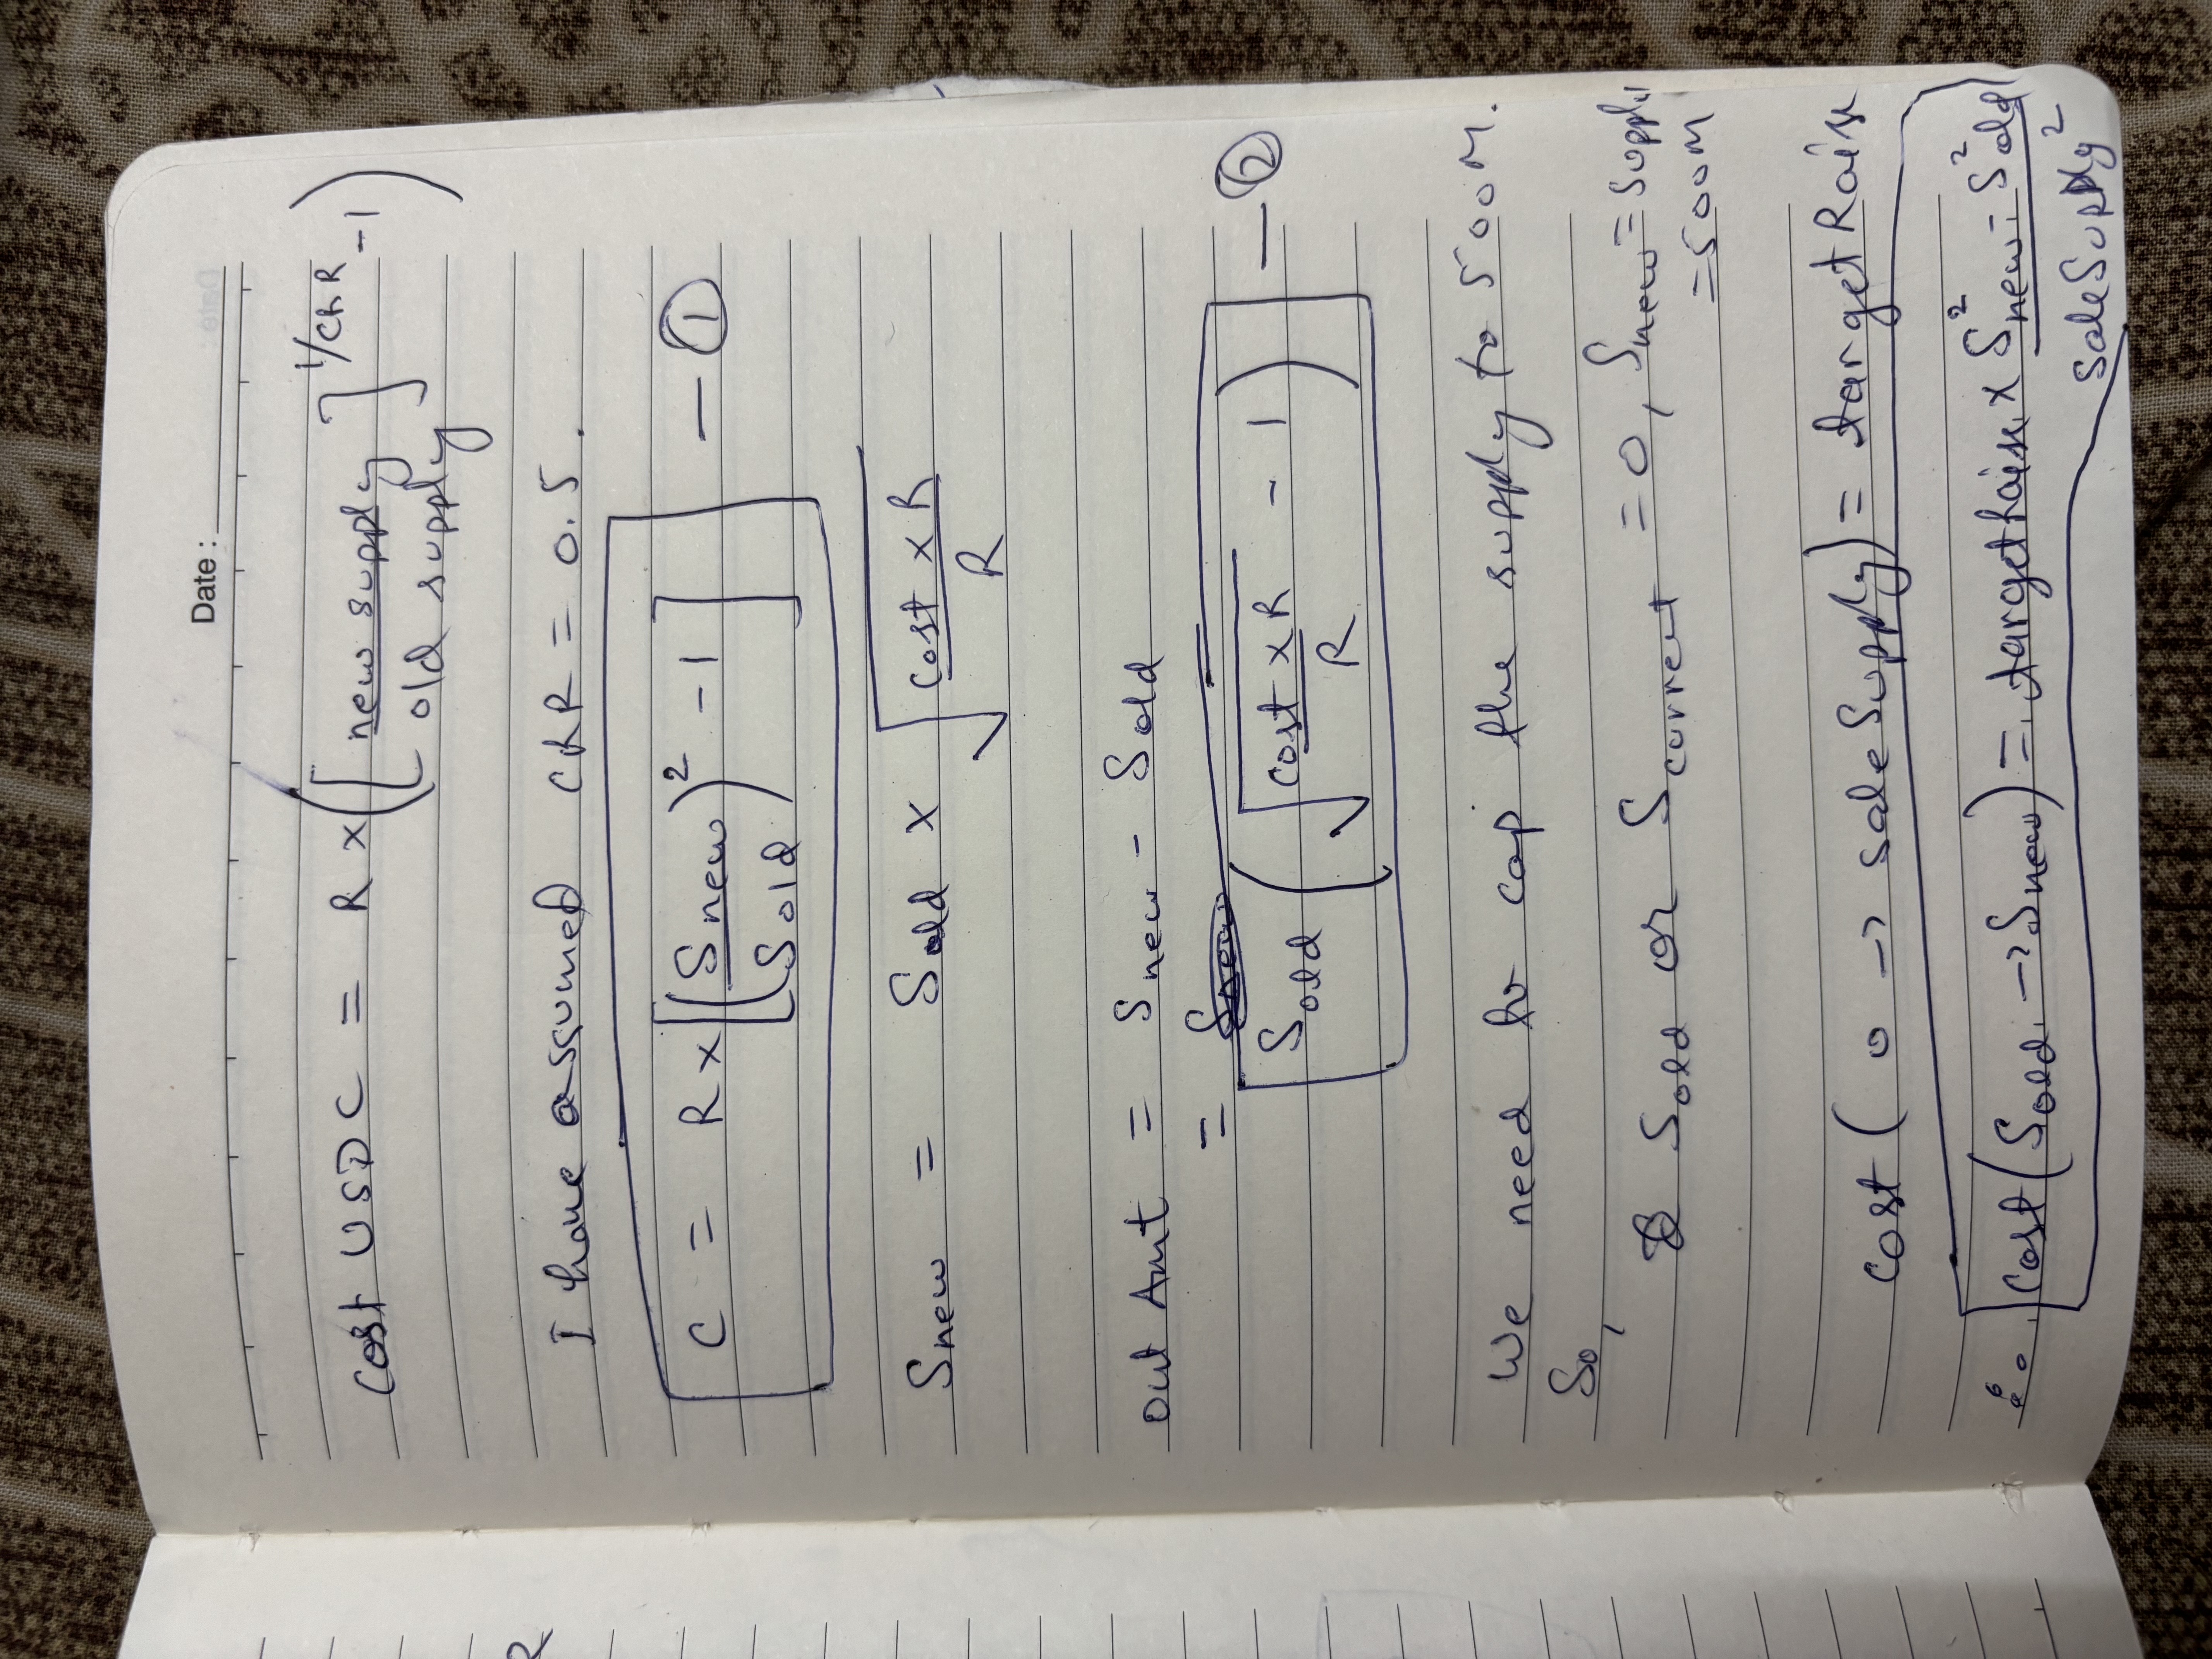 R
Date :
Cost USDC = R × ([new supply / old supply]^1/CRR - 1)
I have assumed CRR = 0.5.
C = R × [(Snew / Sold)^2 - 1] — ①
Snew = Sold × √(cost × R / R)
Out Amt = Snew - Sold
=
Sold (√(cost × R / R) - 1) — ②
We need to cap the supply to 500M.
So,
Sold or Scurrent = 0, Snew = supply
= 500M
cost ( 0 → saleSupply) = targetRaise
∴ cost (Sold → Snew) = targetRaise × S²new - S²old / saleSupply²